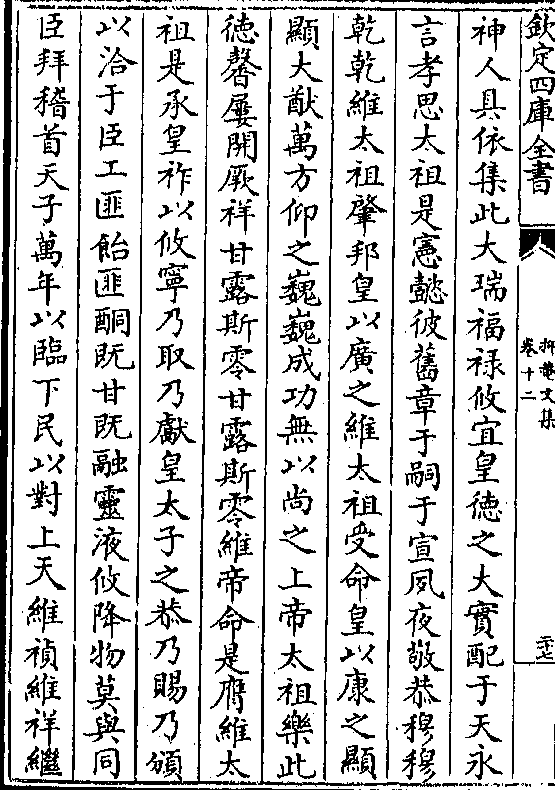 欽定四庫全書
抑菴文集
卷十二
二十七
神人具依集此大瑞福禄攸宜皇德之大實配于天永
言孝思太祖是憲懿彼舊章于嗣于宣夙夜敬恭穆穆
乾乾維太祖肇邦皇以廣之維太祖受命皇以康之顯
顯大猷萬方仰之巍巍成功無以尚之上帝太祖樂此
徳馨屢開厥祥甘露斯零甘露斯零維帝命是膺維太
祖是承皇祚以攸寧乃取乃獻皇太子之恭乃賜乃頒
以洽于臣工匪飴匪酮既甘既融靈液攸降物莫與同
臣拜稽首天子萬年以臨下民以對上天維禎維祥繼